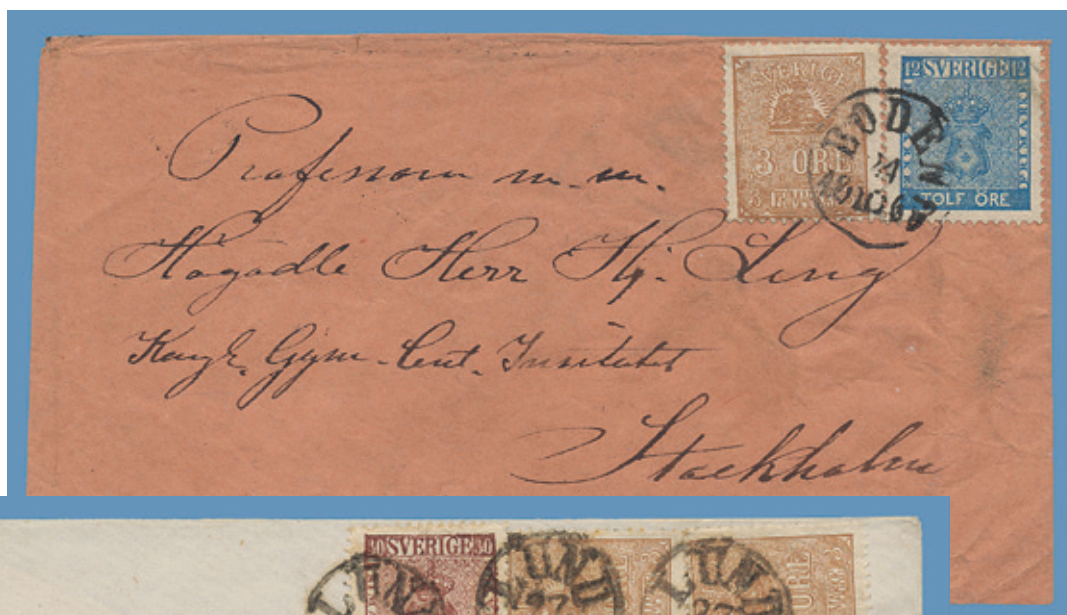 SVERIGE
3 ÖRE
12 SVERIGE 12
TOLF ÖRE
BODEN
Professorn m. m.
Högädle Herr Hj. Ling
Kongl. Gym. Cent. Institutet
Stockholm
30 SVERIGE 30
LUND
LUND
27
LUND
27
ÖRE